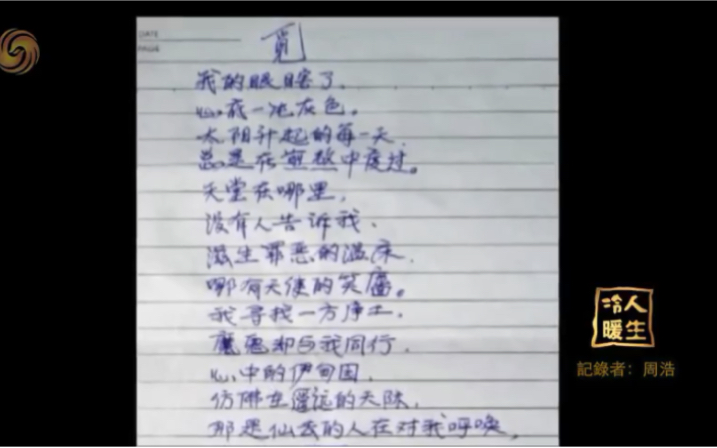 DATE
PAGE
觅
我的眼瞎了，
心底一池灰色。
太阳升起的每一天，
总是在煎熬中度过。
天堂在哪里，
没有人告诉我，
滋生罪恶的温床，
哪有天使的笑靥。
我寻找一方净土，
魔鬼却与我同行，
心中的伊甸园，
仿佛在遥远的天际，
那是仙去的人在对我呼唤，
冷人
暖生
記錄者：周浩